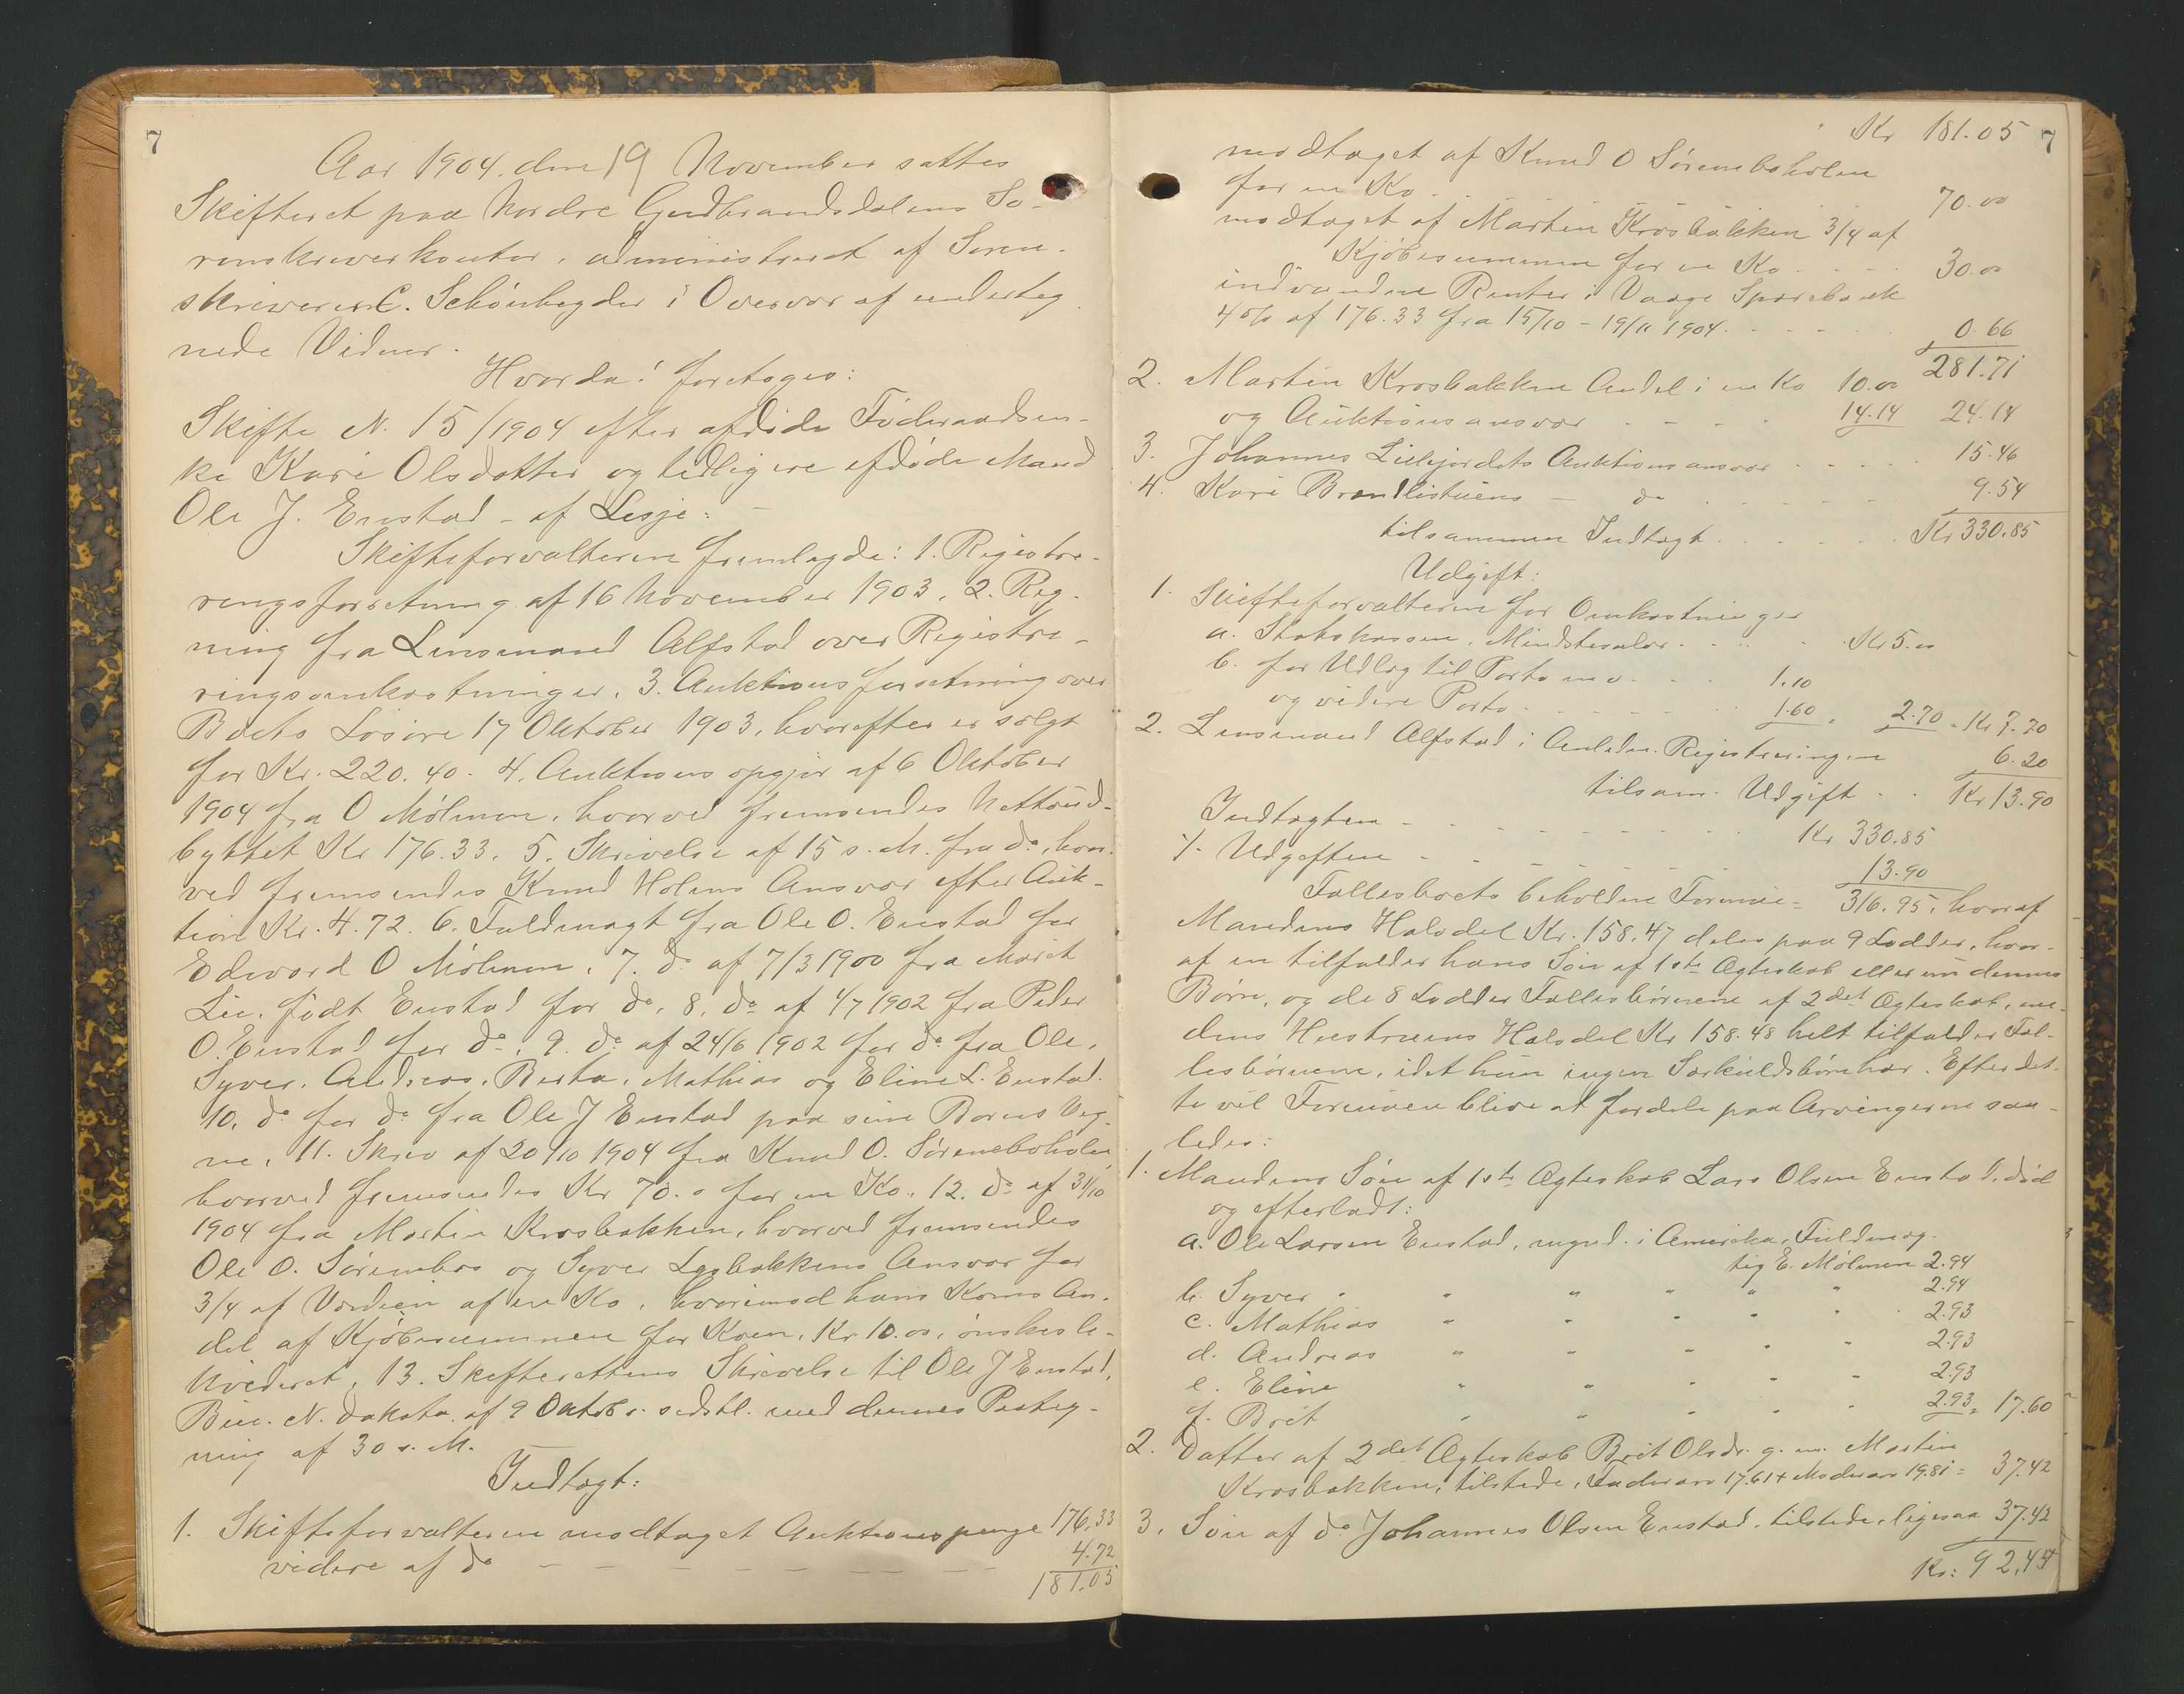 7
Aar 1904. den 19 November sattes
Skifteret paa Nordre Gudbrandsdalens So-
renskriverkontor, administreret af Soren-
skriveren C. Schönheyder i Overvær af underteg-
nede Vidner.
Hvorda! foretoges:
Skifte N. 15/1904 efter afdöde Föderaadsen-
ke Kari Olsdatter og tidligere afdöde Mand
Ole J. Enstad - af Lesje: -
Skifteforvalteren fremlagde: 1. Registre-
ringsforretning af 16 November 1903, 2. Reg-
ning fra Lensmand Alfstad over Registre-
ringsomkostninger, 3. Auktionsforretning over
Boets Lösöre 17 Oktober 1903, hvorefter er solgt
for Kr. 220.40. 4. Auktionsopgjör af 6 Oktober
1904 fra O Mölmen, hvorved fremsendes Nettoud-
byttet Kr 176.33, 5. Skrivelse af 15 s. M. fra do, hvor-
ved fremsendes Knud Holens Ansvar efter Auk-
tion Kr. 4.72. 6. Fuldmagt fra Ole O. Enstad for
Edvard O Mölmen, 7. do af 7/3 1900 fra Marit
Lie, födt Enstad for do, 8. do af 4/7 1902 fra Peder
O. Enstad for do, 9. do af 24/6 1902 for do fra Ole,
Syver, Andreas, Berta, Mathias og Eline L. Enstad.
10. do for do fra Ole J Enstad paa sine Börns Veg-
ne, 11. Skriv af 20/10 1904 fra Knud O. Sörenboholen,
hvorved fremsendes Kr 70.- for en Ko, 12. do af 31/10
1904 fra Martin Krosbakken, hvorved fremsendes
Ole O. Sörembos og Syver Lysbakkens Ansvar for
3/4 af Værdien af en Ko, hvorimod hans Kones An-
del af Kjöbesummen for Koen, Kr 10.00, önskes li-
kvideret, 13. Skifterettens Skrivelse til Ole J Enstad,
N. Dakota af 9 Oktobr. sidstl. med dennes Paateg-
ning af 30 s. M.
Indtægt:
1. Skifteforvalteren modtaget Auktionspenge 176,33
videre af do - - - - - - - - 4.72
181.05
Kr 181.05 7
modtaget af Knud O Sörenboholen
for en Ko . . . 70.00
modtaget af Martin Krosbakken 3/4 af
Kjöbesummen for en Ko . . . . 30.00
indvundne Renter i Vaage Sparebank
4 % af 176.33 fra 15/10 - 19/11 1904 . . . . . 0.66
281.71
2. Martin Krosbakken Andel i en Ko 10.00
og Auktionsansvar . . . . 14.14 24.14
3. Johannes Lillejordets Auktionsansvar . . . . . 15.46
4. Kari Brandlistuens - do . . . . . 9.54
tilsammen Indtægt . . . . . . Kr 330.85
Udgift:
1. Skifteforvalteren for Omkostninger
a. Statskassen, Mindstesalær . . . . Kr 5.00
b. for Udlæg til Porto m v. . . . 1.10
og videre Porto . . . . . . 1.60 = 2.70 = Kr 7.70
2. Lensmand Alfstad i Anledn. Registreringen 6.20
tilsam. Udgift . . Kr 13.90
Indtægten . . . . . . . . Kr 330.85
÷ Udgiften . . . . . . . . 13.90
Fællesboets beholdne Formue = 316.95, hvoraf
Mandens Halvdel Kr. 158.47 deles paa 9 Lodder, hvor-
af en tilfalder hans Sön af 1ste Ægteskab eller nu dennes
Börn, og de 8 Lodder Fællesbörnene af 2det Ægteskab, me-
dens Hustruens Halvdel Kr 158.48 helt tilfalder Fæl-
lesbörnene, idet hun ingen Særkuldsbörn har. Efter det-
te vil Formuen blive at fordele paa Arvingerne saa-
ledes:
1. Mandens Sön af 1ste Ægteskab Lars Olsen Enstad, död
og efterladt:
a. Ole Larsen Enstad, mynd. i Amerika, Fuldmæg-
tig E. Mölmen 2.94
b. Syver " " " " " " 2.94
c. Mathias " " " " " 2.93
d. Andreas " " " " " 2.93
e. Eline " " " " " 2.93
f. Brit " " " " " 2.93 = 17.60
2. Datter af 2det Ægteskab Brit Olsdr. g. m. Martin
Krosbakken, tilstede, Fadersarv 17.61 + Modersarv 19.81 = 37.42
3. Sön af do Johannes Olsen Enstad, tilstede, ligesaa 37.42
Kr: 92.44